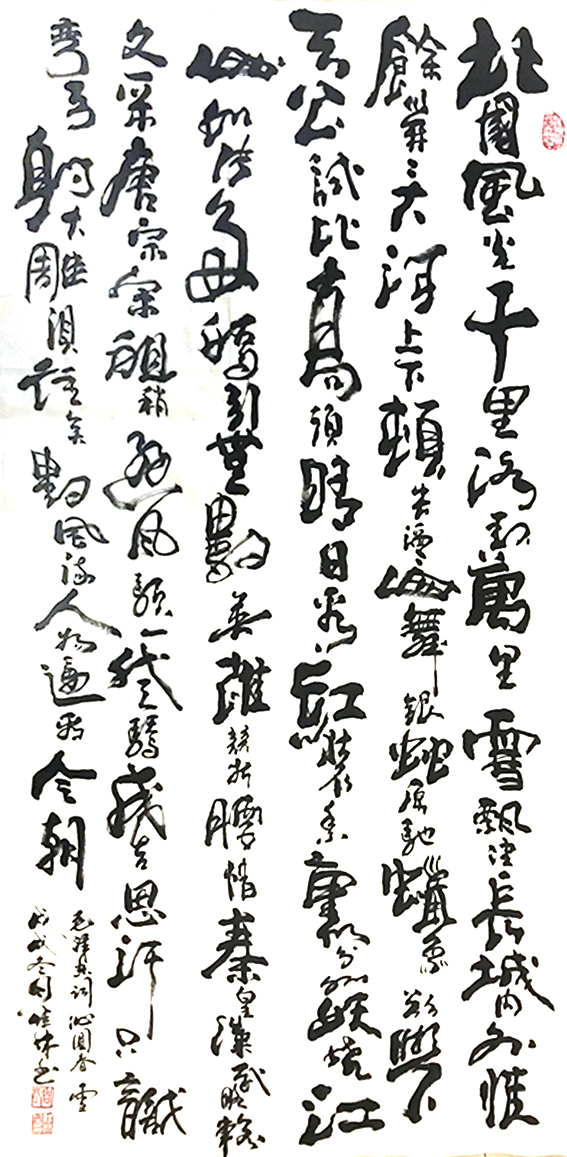 北國風光千里冰封萬里雪飄望長城内外惟
餘莽莽大河上下頓失滔滔山舞銀蛇原馳蠟象欲與
天公試比高須晴日看紅裝素裹分外妖嬈江
山如此多嬌引無數英雄競折腰惜秦皇漢武略輸
文采唐宗宋祖稍遜風騷一代天驕成吉思汗只識
彎弓射大雕俱往矣數風流人物還看今朝
毛澤東詞沁園春雪
戊戌冬月林書